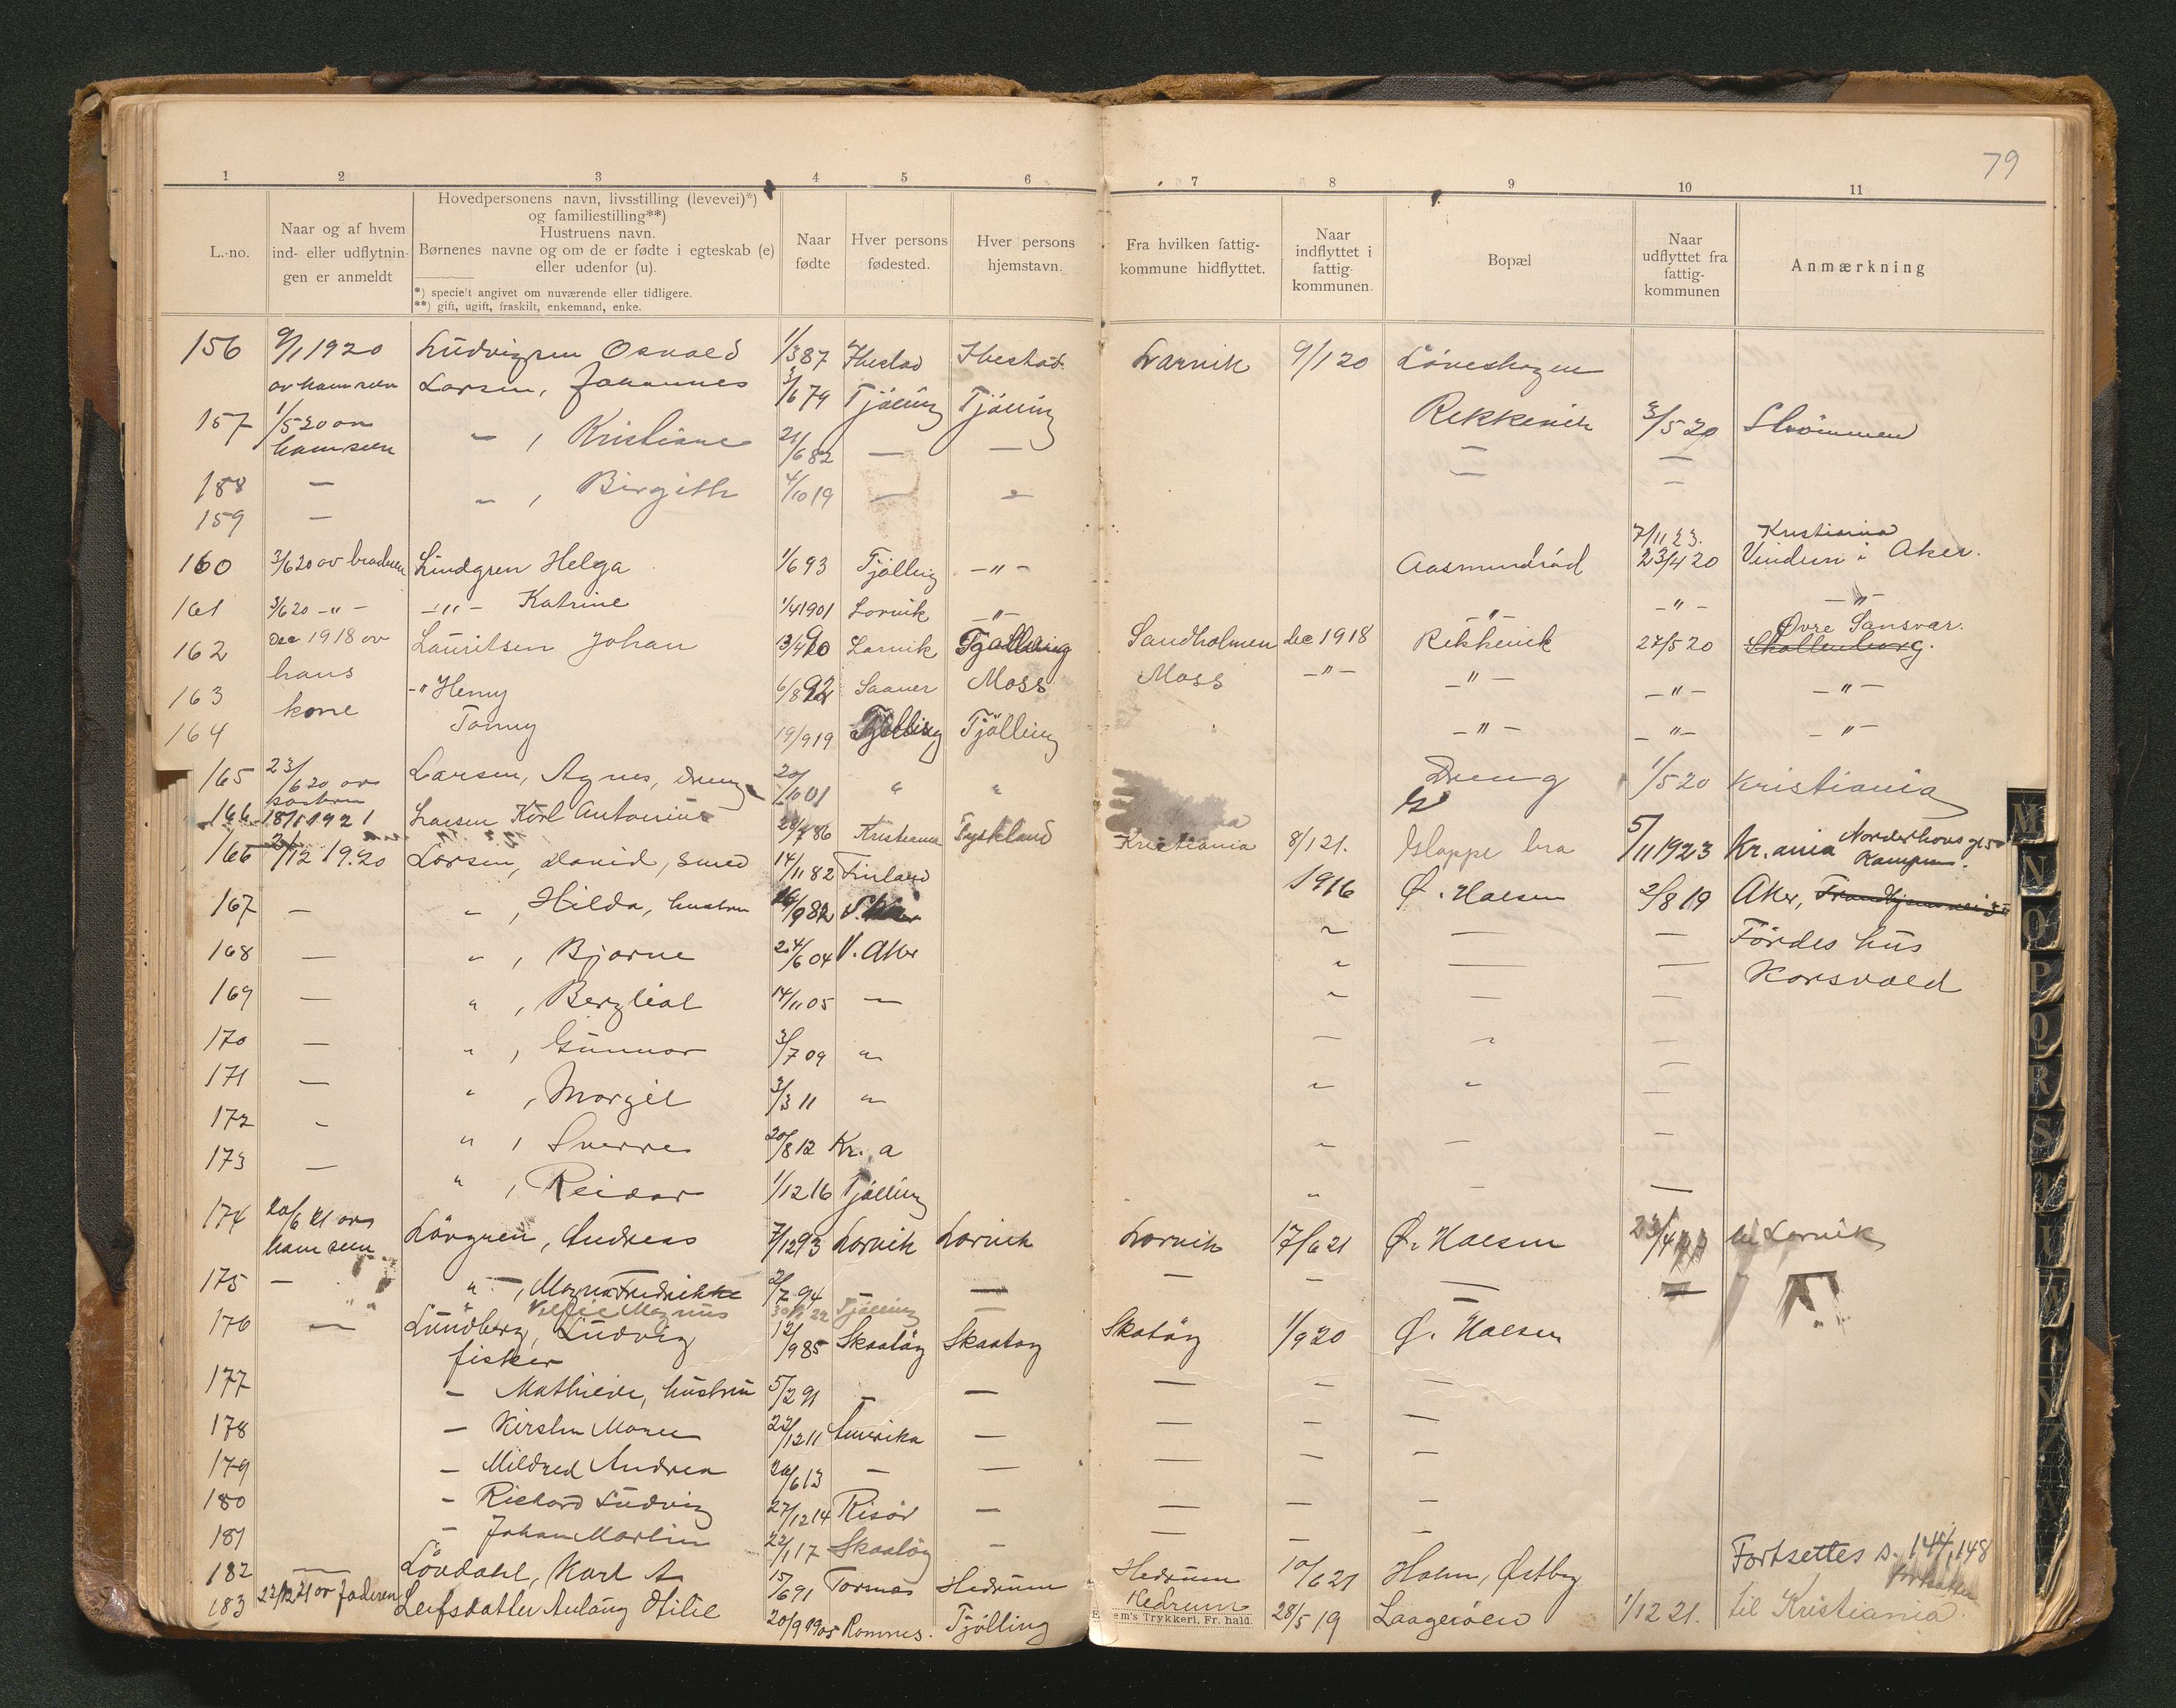 79
1 2 3 4 5 6 7 8 9 10 11
L.-no.
Naar og af hvem ind- eller udflytnin- gen er anmeldt
Hovedpersonens navn, livsstilling (levevei)*)
og familiestilling**)
Hustruens navn.
Børnenes navne og om de er fødte i egteskab (e)
eller udenfor (u).
*) specielt angivet om nuværende eller tidligere.
**) gift, ugift, fraskilt, enkemand, enke.
Naar fødte
Hver persons fødested.
Hver persons hjemstavn.
Fra hvilken fattig- kommune hidflyttet.
Naar indflyttet i fattig- kommunen.
Bopæl
Naar udflyttet fra fattig- kommunen
Anmærkning
156 9/1 1920 Ludvigsen Osvald 1/3 87 Ibestad Ibestad Larvik 9/1 20 Löveskogen
av ham selv Larsen, Johannes 3/6 79 Tjölling Tjölling Rekkevik 3/5 20 Strömmen
157 1/5 20 av ham selv " , Kristiane 21/6 82 — — — —
158 — " , Birgith 4/10 19 — "
159 —
7/11 23. Kristiania
160 3/6 20 av broderen Lindgren Helga 1/6 93 Tjølling -"- Aasmundrød 23/4 20 Vindern i Aker.
161 3/6 20 -"- -"- Katrine 1/4 1901 Larvik -"- -"- -"- -"-
162 Dec 1918 av Lauritsen Johan 13/4 90 Larvik Tjølling Sandholmen dec 1918 Rekkevik 27/5 20 Øvre Sansvar.
Skollenborg.
163 hans -" Henny 6/8 92 Saaner Moss Moss -"- -"- -"- -"-
164 kone Tonny 19/9 19 Tjølling Tjölling -"- -"- -"-
165 23/6 20 av Larsen, Agnes, Dreng 20/10 01 " " Dreng 1/5 20 Kristiania
166 18/1 1921 Larsen Karl Antonius 28/7 86 Kristiania Tyskland Kristiania 8/1 21. Gloppe bra 5/11 1923 Kr.ania Norderhovs gt 5
Kampen.
166 21/12 1920 Larsen, David, smed 14/11 82 Finland 1916 Ø. Halsen 2/8 19 Aker,
167 — " , Hilda, hustru 9 82 V. Aker " — — Fördes hus
168 — " , Bjarne 24/6 04 V. Aker " — — Korsvold
169 — " , Bergliot 14/11 05 — " — —
170 — " , Gunnar 3/7 09 " — " —
171 — " , Margit 3/3 11 " " " —
172 - " , Sverre 20/8 12 Kr.a " — —
173 — " , Reidar 1/12 16 Tjölling " - —
174 20/6 21 av ham selv Lövgren, Andreas 7/12 93 Larvik Larvik Larvik 17/6 21 Ø. Halsen 23/4 til Larvik
175 — " —, Magna Fredrikke 2/7 94 — — — — — —
" Magnus 22 Tjölling —
176 — Lundberg, Ludvig 12/9 85 Skaatöy Skaatöy Skatöy 1/9 20 Ø. Halsen
fisker
177 — Mathilde, hustru 5/2 91 — — — — —
178 — Kirsten Maren 22/12 11 Amerika — — — —
179 — Mildred Andrea 20/6 13 — — — — —
180 — Richard Ludvig 27/12 14 Risör — — — —
181 — Johan Martin 22/1 17 Skaatöy - — — -
Fortsettes s. 144, 148
182 — Lövdahl, Karl A. 15/6 91 Torsnes Hedrum Hedrum 10/6 21 Holm, Østby
183 22/12 21 av faderen Leifsdatter Aslaug Otilie 20/9 1905 Ramnes. Tjölling Hedrum 28/5 19 Laagerøen 1/12 21. til Kristiania.
m's Trykkeri, Fr. hald.
M
N
O
P
Q
R
S
U
W
Y